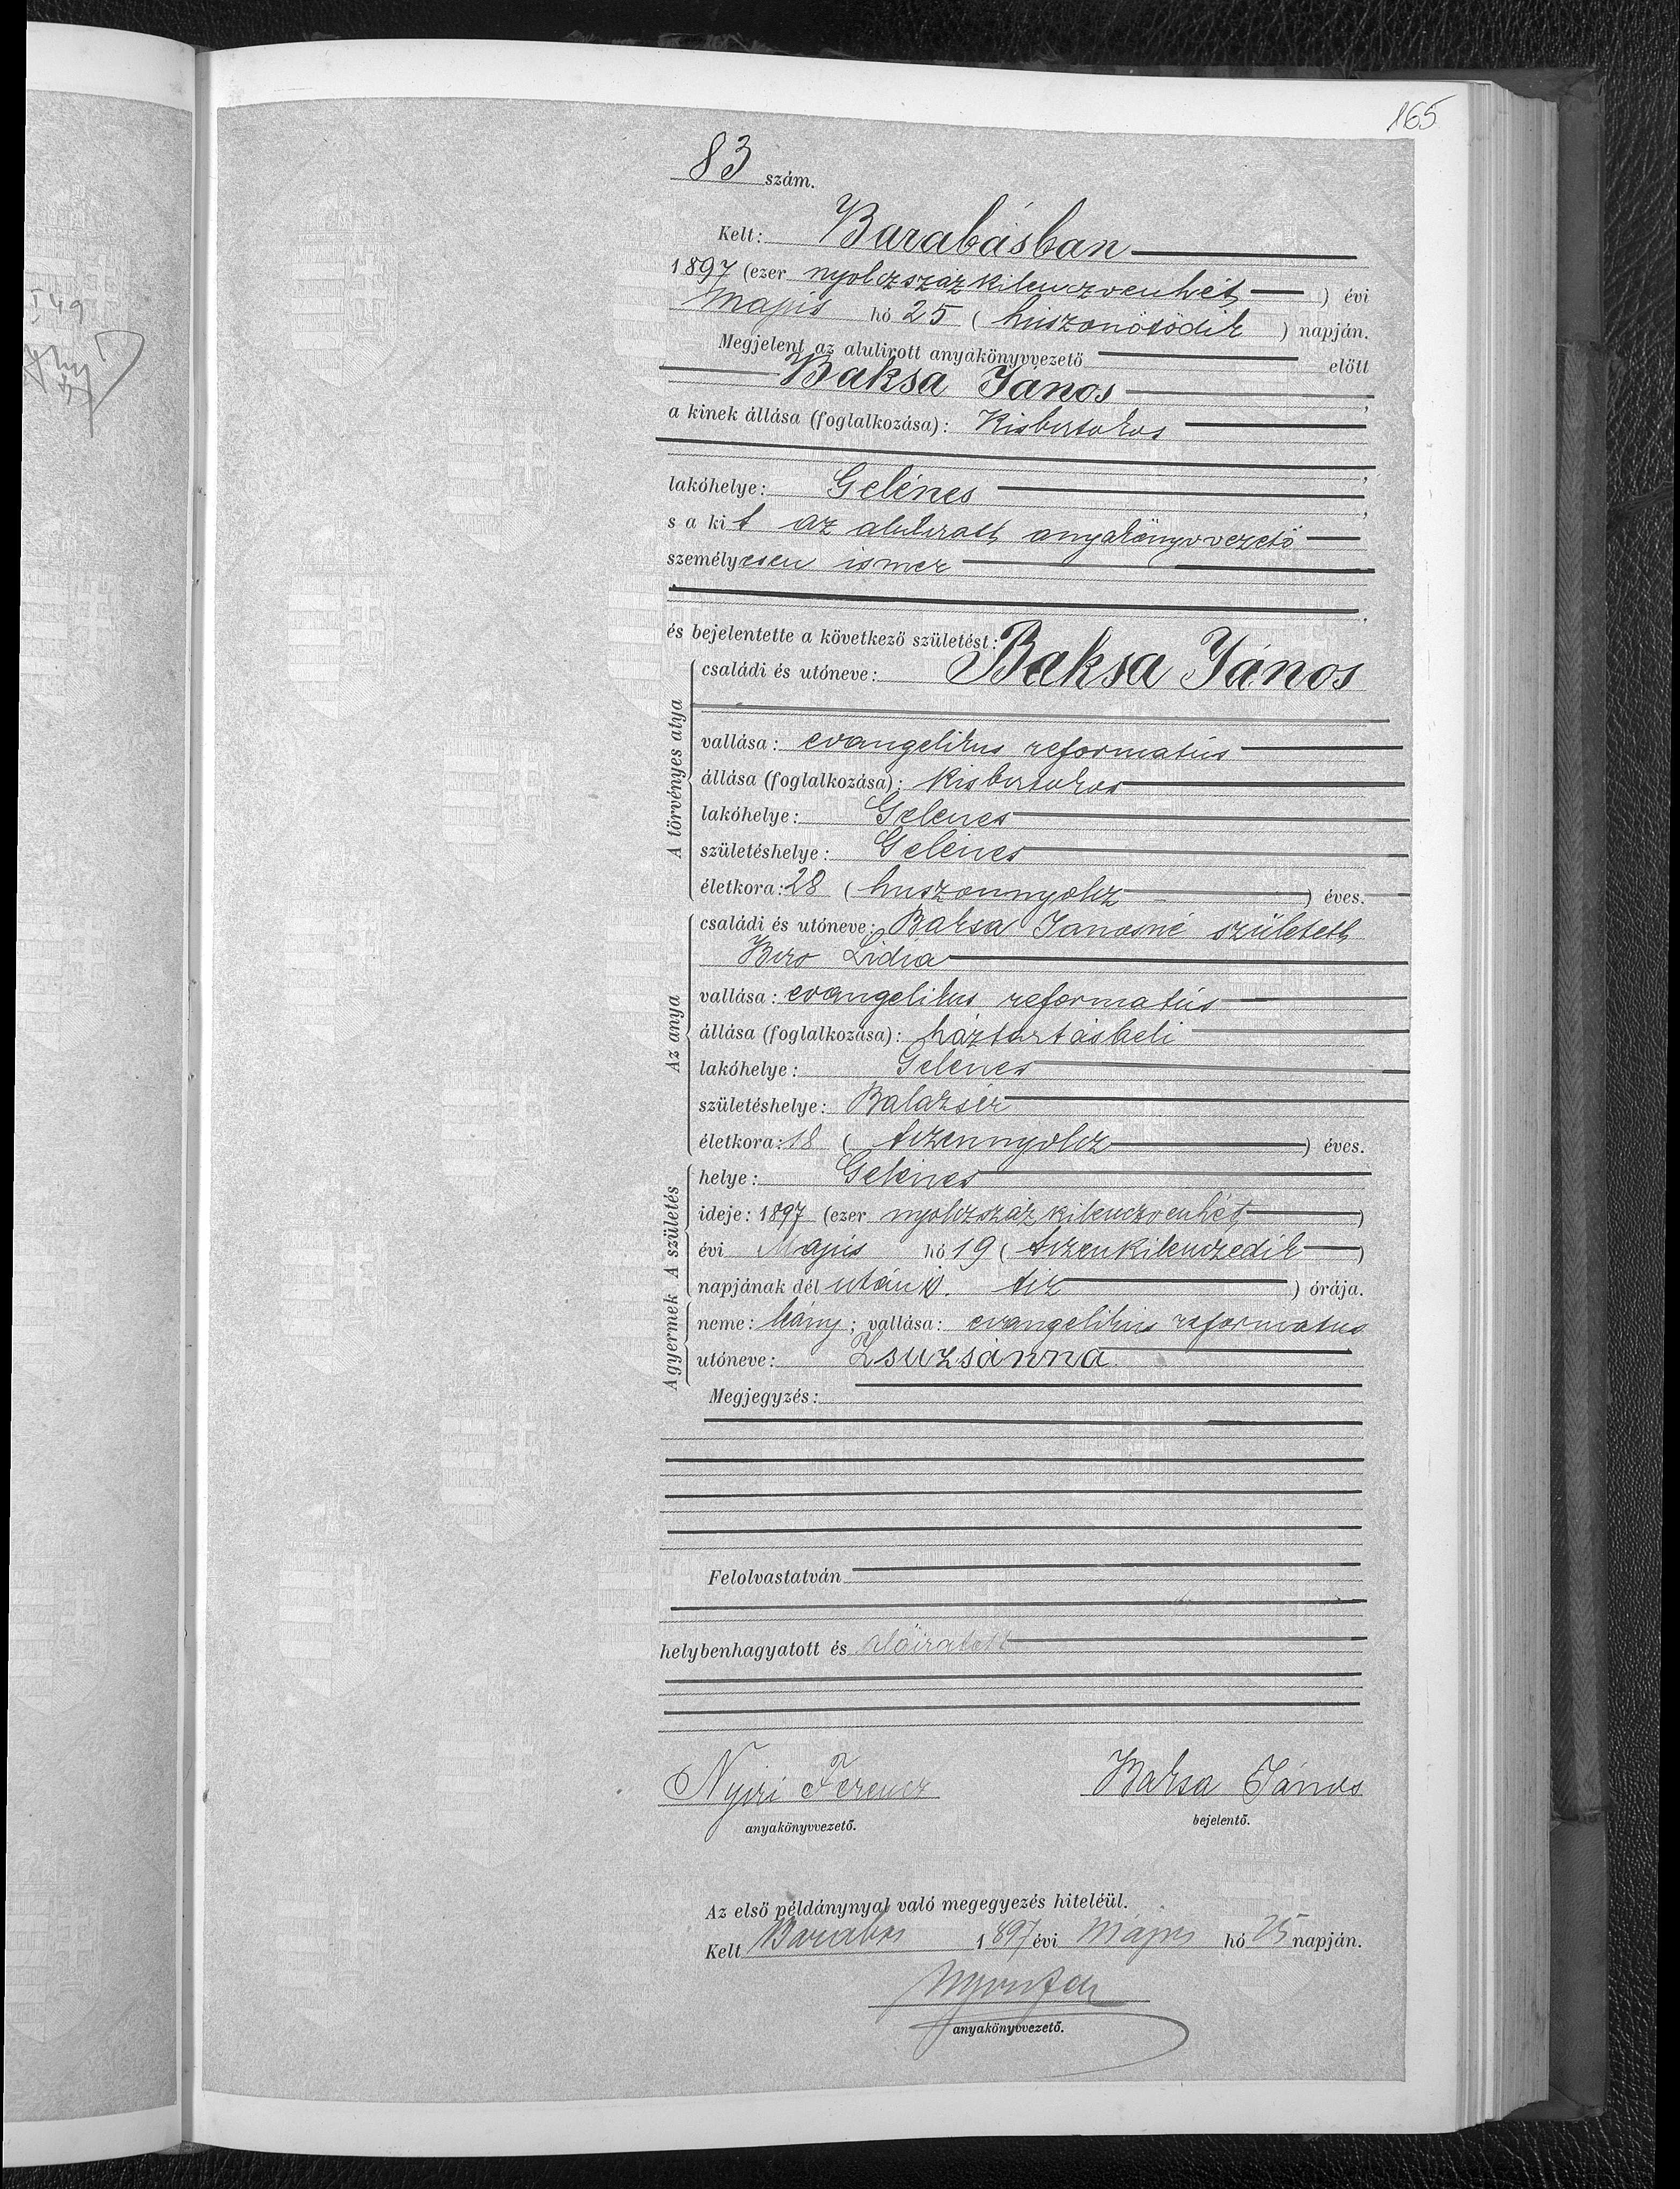 165
83 szám.
Kelt: Barabásban
1897 (ezer nyolczszázkilenczvenhét) évi
Majús hó 25 (huszonötödik) napján.
Megjelent az alulirott anyakönyvvezető előtt
Baksa János,
a kinek állása (foglalkozása): Kisbirtokos
lakóhelye: Gelénes,
s a kit az alulirott anyakönyvvezető
személyesen ismer
és bejelentette a következő születést:
A törvényes atya
családi és utóneve: Baksa János
vallása: evangelikus reformatús
állása (foglalkozása): Kisbirtokos
lakóhelye: Gelénes
születéshelye: Gelénes
életkora: 28 (huszonnyolcz) éves.
Az anya
családi és utóneve: Baksa Janosné születeth
Biro Lidia
vallása: evangelikus reformatús
állása (foglalkozása): háztartásbeli
lakóhelye: Gelénes
születéshelye: Balazsér
életkora: 18 (tizennyolcz) éves.
A születés
helye: Gelénes
ideje: 1897 (ezer nyolczszázkilenczvenhét)
évi Majús hó 19 (tizenkilenczedik)
napjának dél utáni tiz) órája.
A gyermek
neme: leány; vallása: evangelikus reformatus
utóneve: Zsuzsánna
Megjegyzés:
Felolvastatván
helybenhagyatott és aláiratott
Nyiri Ferencz Baksa János
anyakönyvvezető. bejelentő.
Az első példánynyal való megegyezés hiteléül.
Kelt Barabás 1897 évi Május hó 25 napján.
anyakönyvvezető.